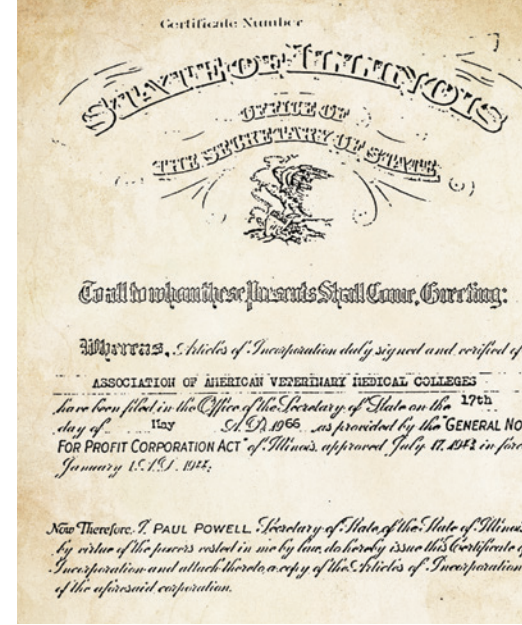 Certificate Number
STATE OF ILLINOIS
OFFICE OF
THE SECRETARY OF STATE
To all to whom these Presents Shall Come, Greeting:
Whereas, Articles of Incorporation duly signed and verified of
ASSOCIATION OF AMERICAN VETERINARY MEDICAL COLLEGES
have been filed in the Office of the Secretary of State on the 17th
day of May A.D. 1966 as provided by the "GENERAL NO
FOR PROFIT CORPORATION ACT" of Illinois, approved July 17, 1943 in forc
January 1, A.D. 1944;
Now Therefore, I, PAUL POWELL, Secretary of State of the State of Illinois
by virtue of the powers vested in me by law, do hereby issue this Certificate o
Incorporation and attach thereto a copy of the Articles of Incorporation
of the aforesaid corporation.